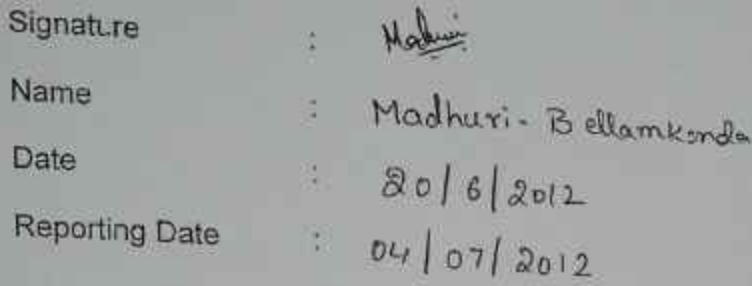 Signature : Madhuri
Name : Madhuri - Bellamkonda
Date : 20/6/2012
Reporting Date : 04/07/2012